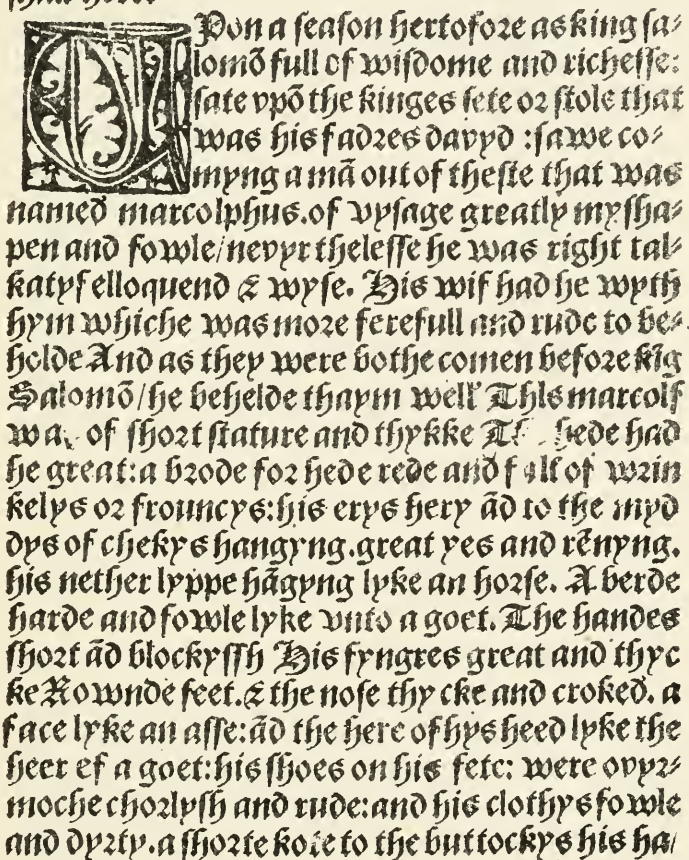 UPon a season hertofore as king sa⸗
lomō full of wisdome and richesse:
sate vpō the kinges sete or stole that
was his fadres davyd : sawe co⸗
myng a mā out of theste that was
named marcolphus. of vysage greatly myssha⸗
pen and fowle/nevyrthelesse he was right tal⸗
katyf elloquend & wyse. His wif had he wyth
hym whiche was more ferefull and rude to be⸗
holde And as they were bothe comen before kīg
Salomō/he behelde thaym well This marcolf
was of short stature and thykke The hede had
he great: a brode forhede rede and full of wrin
kelys or frouncys: his erys hery ād to the myd
dys of chekys hangyng. great yes and rēnyng.
his nether lyppe hāgyng lyke an horse. A berde
harde and fowle lyke vnto a goet. The handes
short ād blockyssh His fyngres great and thyc
ke Rownde feet. & the nose thycke and croked. a
face lyke an asse: ād the here of hys heed lyke the
heer of a goet: his shoes on his fete: were ovyr⸗
moche chorlysh and rude: and his clothys fowle
and dyrty. a shorte kote to the buttockys his ha/